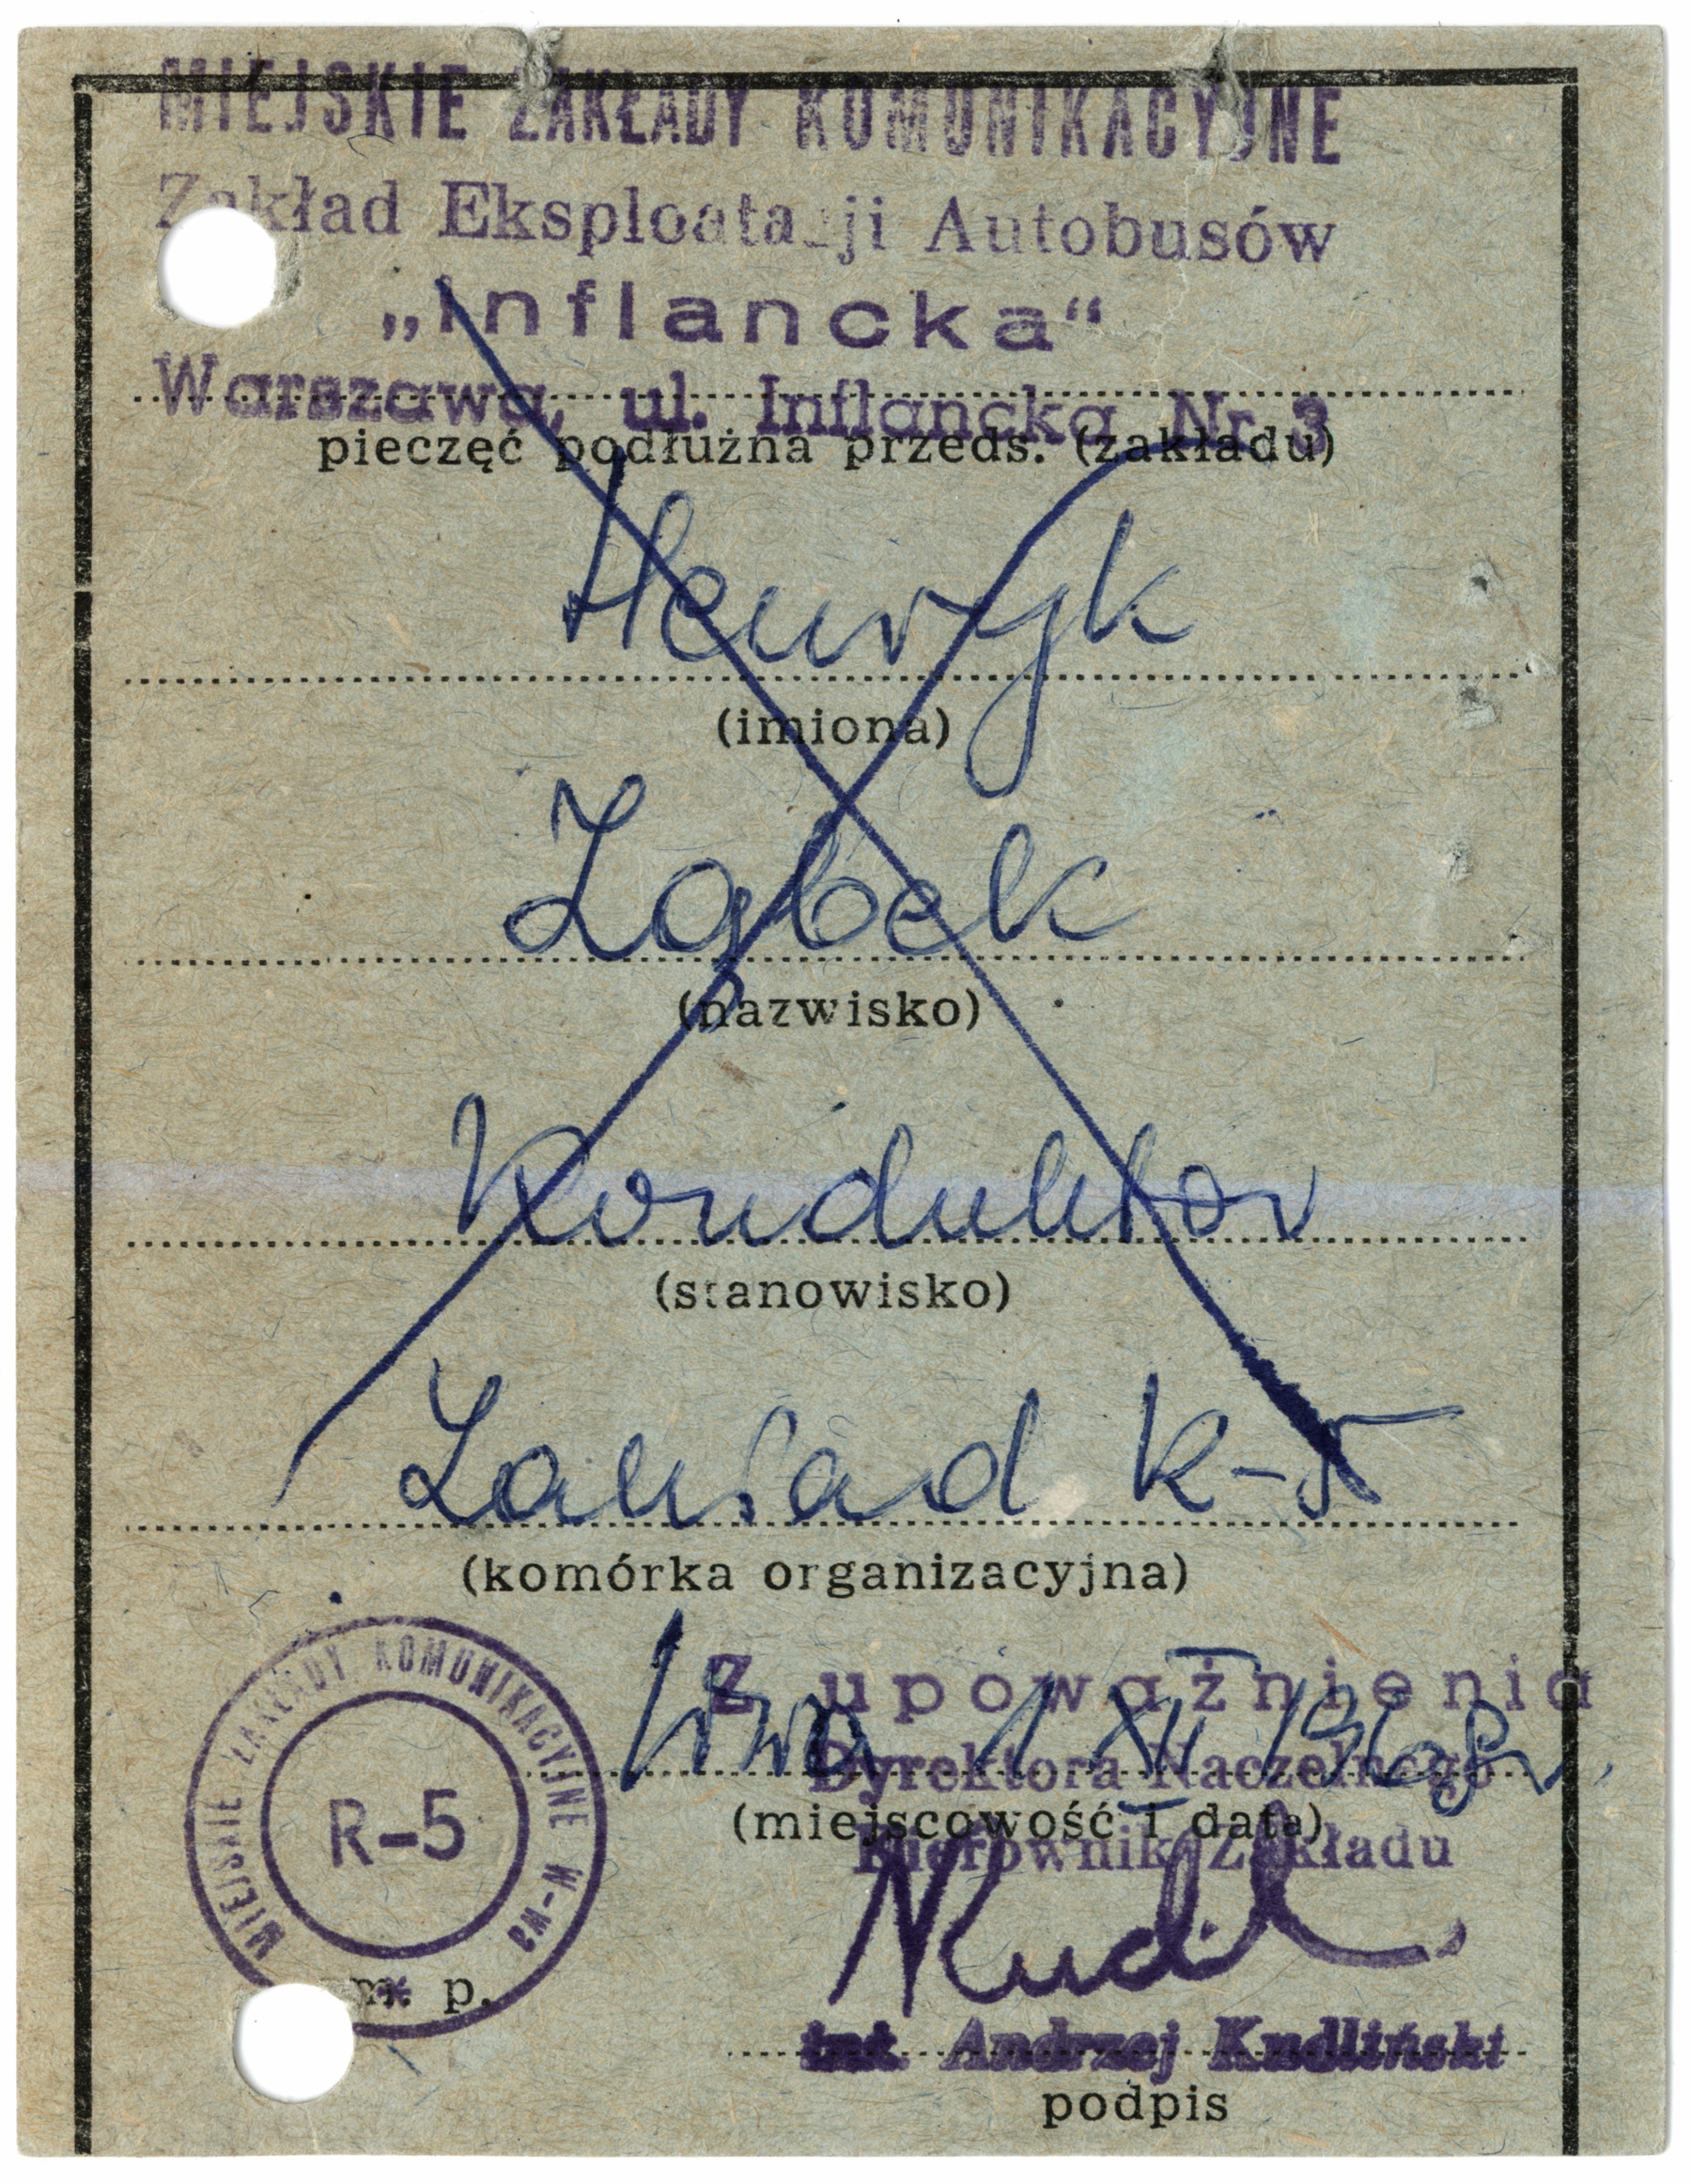 MIEJSKIE ZAKŁADY KOMUNIKACYJNE
Zakład Eksploatacji Autobusów
„Inflancka“
Warszawa, ul. Inflancka Nr 3
pieczęć podłużna przeds. (zakładu)
Henryk
(imiona)
Ząbek
(nazwisko)
Konduktor
(stanowisko)
Zakład R-5
(komórka organizacyjna)
Z upoważnienia
W-wa 1 XII 1968r.
Dyrektora Naczelnego
(miejscowość i data)
Kierownik Zakładu
MIEJSKIE ZAKŁADY KOMUNIKACYJNE W-wa
R-5
m. p.
inż. Andrzej Kudliński
podpis